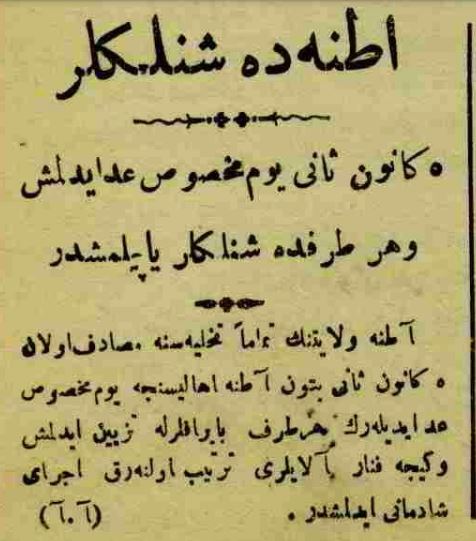 اطنه‌ده شنلكلر
٥ كانون ثانی یوم مخصوص عد ایدلمش
وهر طرفده شنلكلر یاپیلمشدر
آطنه ولایتنك تماماً تخلیه‌سنه مصادف اولان
٥ كانون ثانی بتون آطنه اهالیسنجه یوم مخصوص
عد ایدیله‌رك هر طرف بایراقلرله تزیین ایدلمش
وكیجه فنار آلایلری ترتیب اولنه‌رق اجرای
شادمانی ایدلمشدر . (آ . آ)